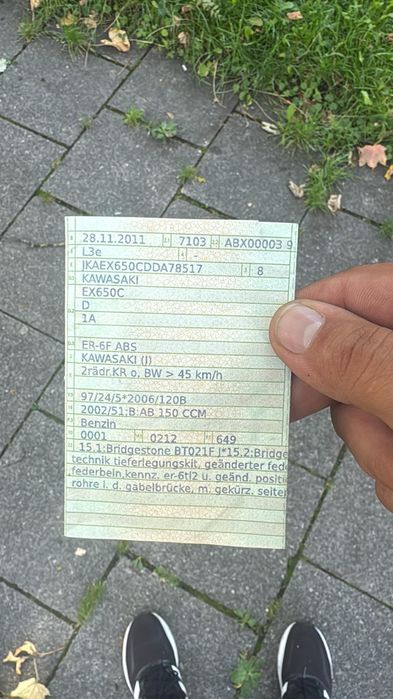 B 28.11.2011 2.1 7103 2.2 ABX00003 9
J L3e 4 -
E JKAEX650CDDA78517 3 8
D.1 KAWASAKI
EX650C
D.2 D
1A
D.3 ER-6F ABS
2 KAWASAKI (J)
5 2rädr.KR o. BW > 45 km/h
V.9 97/24/5*2006/120B
14 2002/51;B:AB 150 CCM
P.3 Benzin
10 0001 14.1 0212 P.1 649
22 15.1:Bridgestone BT021F J*15.2:Bridge
technik tieferlegungskit, geänderter fede
,federbein,kennz. er-6tl2 u. geänd. positi
rohre i. d. gabelbrücke, m. gekürz. seite